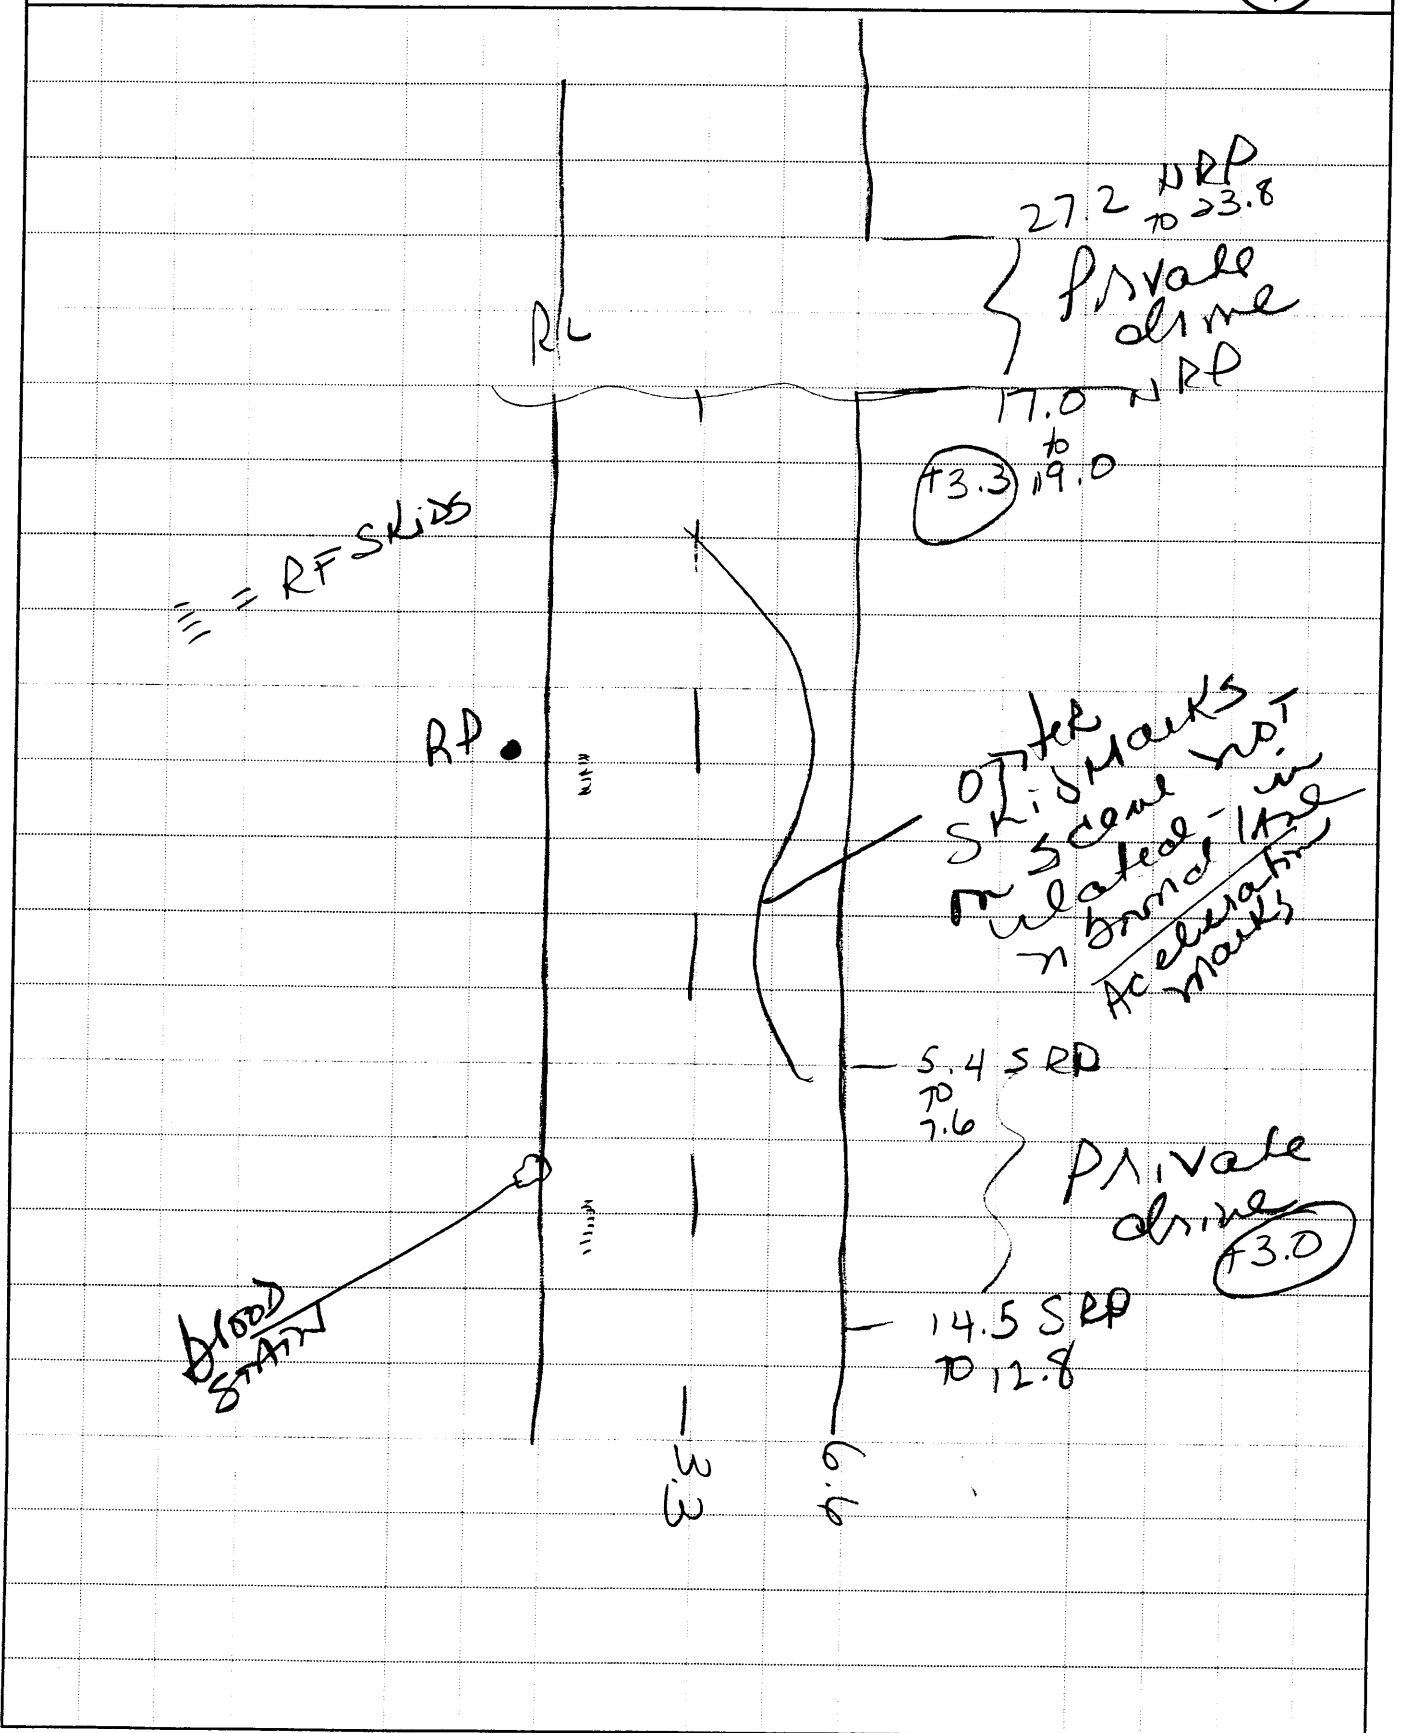 27.2 NRP
TO 23.8
Private
drive
RL
17.0 N RP
to
19.0
+3.3
= RF SKiDS
RP
OTHER
SKiDMarKS
on scene not
related - in
n bound lane
Aceleration
marks
5.4 S RP
TO
7.6
Private
drive
+3.0
14.5 S RP
TO 12.8
blooD
STAiN
3.3
6.6